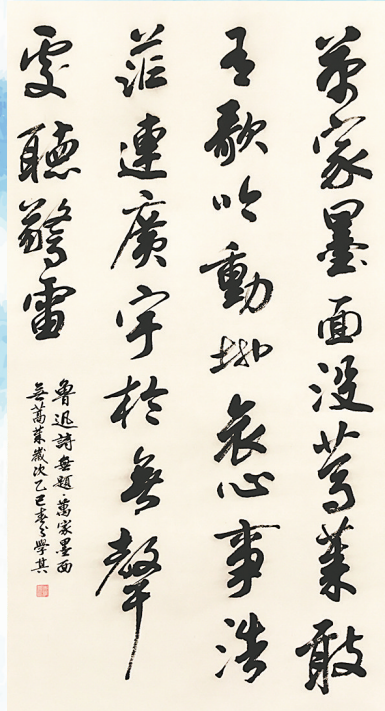 萬家墨面没蒿萊敢
有歌吟動地哀心事浩
茫連廣宇於無聲
處聽驚雷
魯迅詩無題·萬家墨面
無蒿萊歲次乙巳春學其